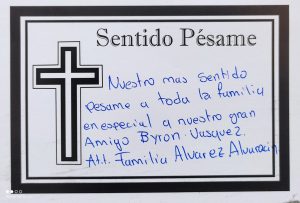 Sentido Pésame
Nuestro mas sentido
pesame a toda la familia
en especial a nuestro gran
Amigo Byron Vasquez.
Att. Familia Alvarez Alvaracin